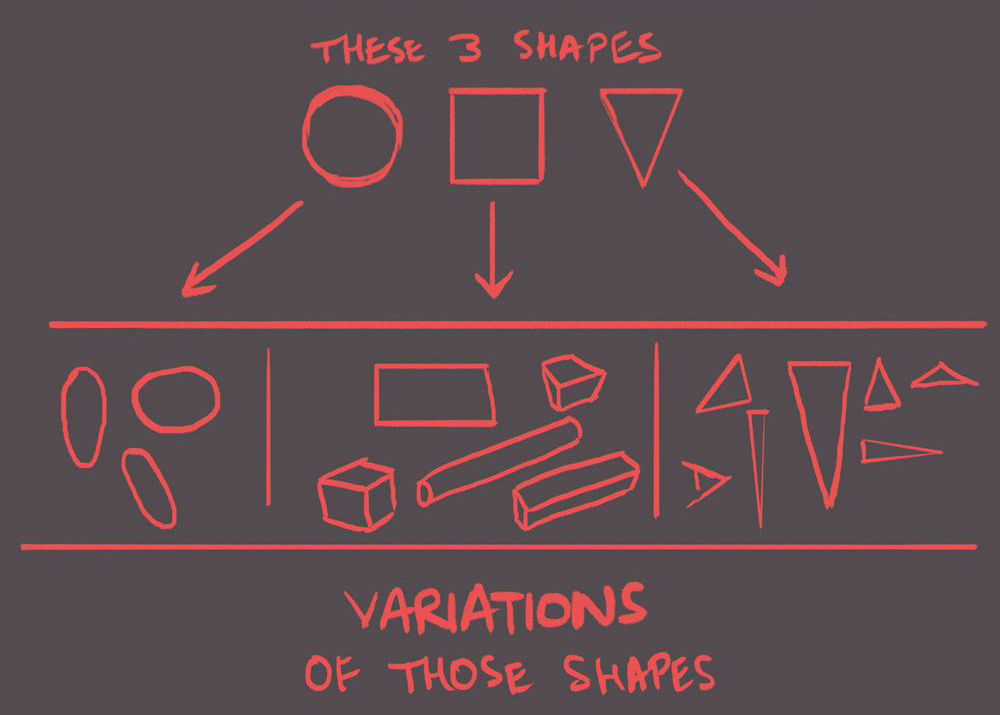 THESE 3 SHAPES
VARIATIONS
OF THOSE SHAPES